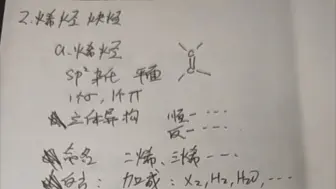 2. 烯烃 炔烃
a. 烯烃
sp² 杂化 平面
1个σ, 1个π
立体异构 顺-···
反-···
命名 二烯、三烯···
加成: X₂, H₂, H₂O, ···